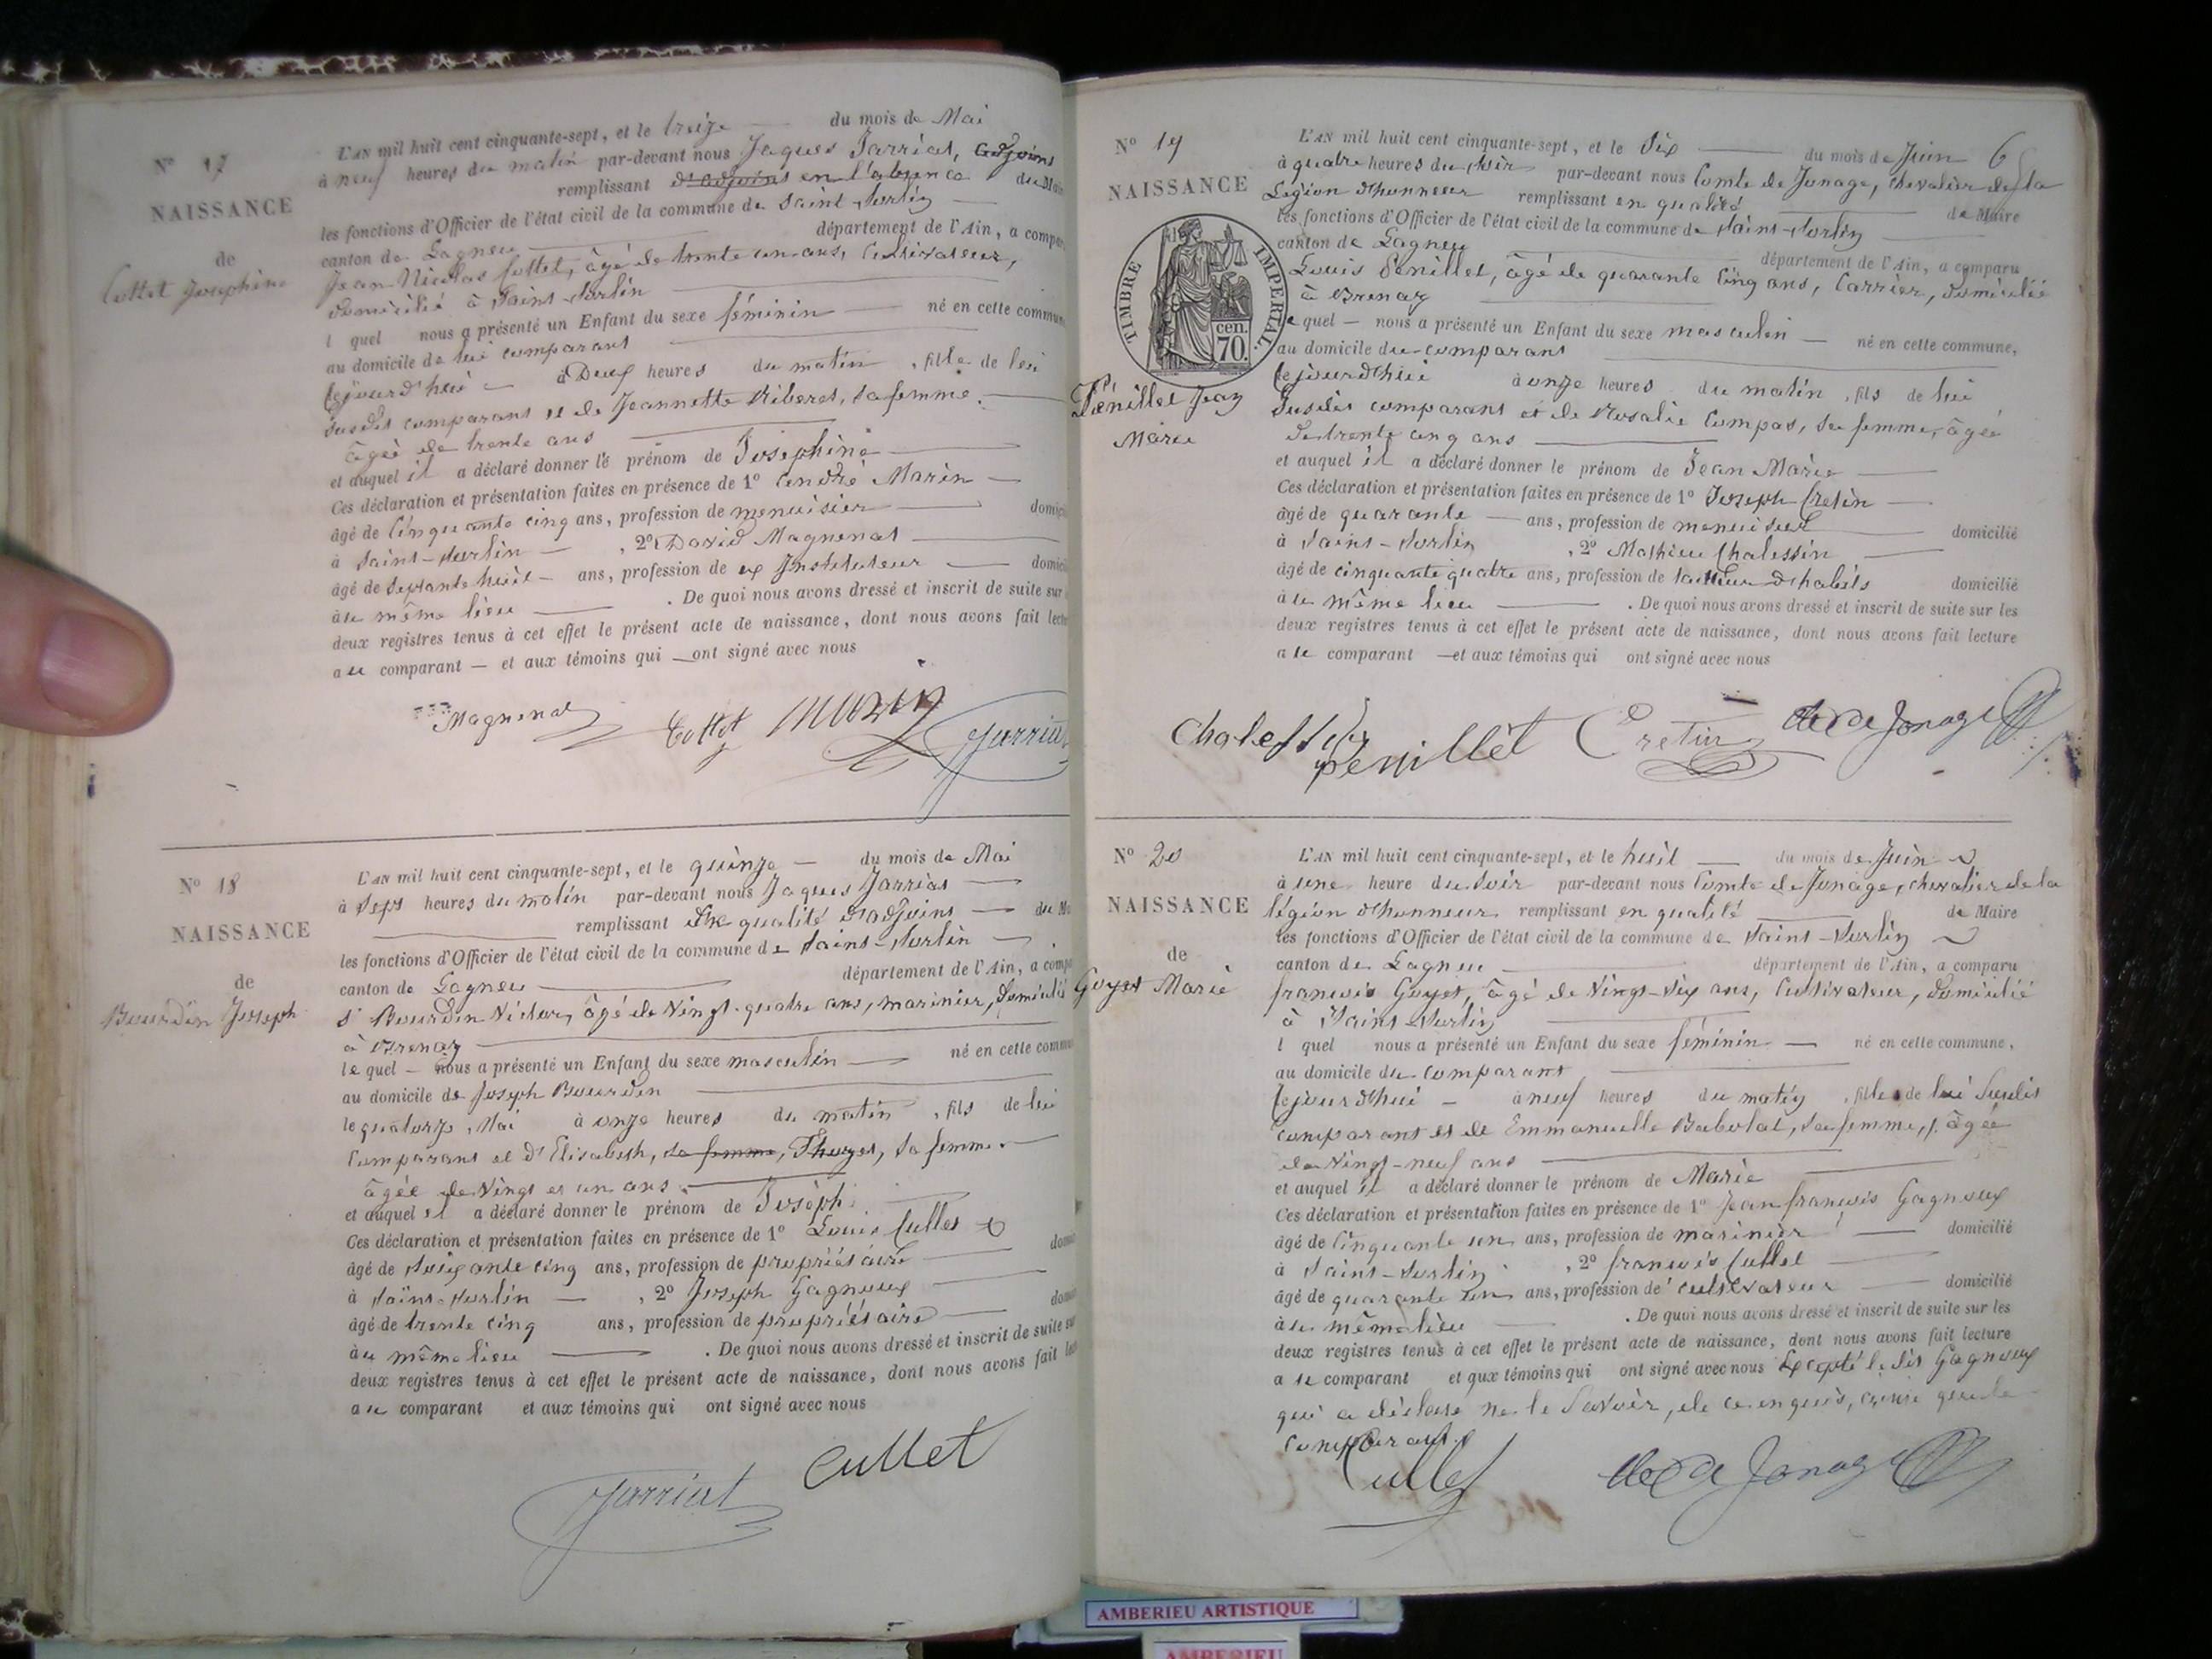 N° 17
NAISSANCE
de
Cottet Josephine
L'AN mil huit cent cinquante-sept, et le treize du mois de Mai
à neuf heures du matin par-devant nous Jaques Jarriat, adjoint
remplissant d'adjoint en l'absence du Mai
les fonctions d'Officier de l'état civil de la commune de Saint-Sorlin
canton de Lagneu département de l'Ain, a compar
Jean Nicolas Cottet, âgé de trente un ans, Cultivateur,
domicilié à Saint-Sorlin
l quel nous a présenté un Enfant du sexe féminin né en cette commun
au domicile de lui comparant
cejourd'hui à Deux heures du matin, fille de lui
susdit comparant et de Jeannette Riberet, sa femme,
âgée de trente ans
et auquel il a déclaré donner le prénom de Josephine
Ces déclaration et présentation faites en présence de 1° André Marin
âgé de Cinquante cinq ans, profession de menuisier domici
à Saint-Sorlin, 2° David Magnenat
âgé de Septante huit ans, profession de ex Instituteur domici
à u même lieu. De quoi nous avons dressé et inscrit de suite sur
deux registres tenus à cet effet le présent acte de naissance, dont nous avons fait lect
a u comparant et aux témoins qui ont signé avec nous
Magnenat Cottet Marin Jarriat
N° 18
NAISSANCE
de
Bourdin Joseph
L'AN mil huit cent cinquante-sept, et le quinze du mois de Mai
à Sept heures du matin par-devant nous Jaques Jarriat
remplissant en qualité d'adjoint du Ma
les fonctions d'Officier de l'état civil de la commune de Saint-Sorlin
canton de Lagneu département de l'Ain, a comp
s. Bourdin Victor, âgé de Vingt-quatre ans, marinier, domicilié
à Brenaz
le quel nous a présenté un Enfant du sexe masculin né en cette commu
au domicile de Joseph Bourdin
le quatorze Mai à onze heures du matin, fils de lui
Comparant et d'Elisabeth, sa femme, Thuyet, sa femme
âgée de Vingt et un ans
et auquel il a déclaré donner le prénom de Joseph
Ces déclaration et présentation faites en présence de 1° Louis Cullet
âgé de Soixante cinq ans, profession de propriétaire domi
à Saint-Sorlin, 2° Joseph Gagnoux
âgé de trente cinq ans, profession de propriétaire domi
à u même lieu. De quoi nous avons dressé et inscrit de suite su
deux registres tenus à cet effet le présent acte de naissance, dont nous avons fait lec
a u comparant et aux témoins qui ont signé avec nous
Jarriat Cullet
N° 19
NAISSANCE
TIMBRE IMPERIAL
cen.
70.
Pénillet Jean
Marie
L'AN mil huit cent cinquante-sept, et le Six du mois de Juin 6
à quatre heures du soir par-devant nous Comte de Jonage, chevalier de la
Légion d'honneur remplissant en qualité de Maire
les fonctions d'Officier de l'état civil de la commune de Saint-Sorlin
canton de Lagneu département de l'Ain, a comparu
Louis Pénillet, âgé de quarante Cinq ans, Carrier, domicilié
à Brenaz
le quel nous a présenté un Enfant du sexe masculin né en cette commune,
au domicile du comparant
cejourd'hui à onze heures du matin, fils de lui
susdit comparant et de Rosalie Compas, sa femme, âgée
de trente cinq ans
et auquel il a déclaré donner le prénom de Jean Marie
Ces déclaration et présentation faites en présence de 1° Joseph Cretin
âgé de quarante ans, profession de menuisier domicilié
à Saint-Sorlin, 2° Mathieu Chalessin
âgé de cinquante quatre ans, profession de tailleur d'habits domicilié
à u même lieu. De quoi nous avons dressé et inscrit de suite sur les
deux registres tenus à cet effet le présent acte de naissance, dont nous avons fait lecture
a u comparant et aux témoins qui ont signé avec nous
Chalessin Penillet Cretin de Jonage
N° 20
NAISSANCE
de
Goyet Marie
L'AN mil huit cent cinquante-sept, et le huit du mois de Juin
à une heure du Soir par-devant nous Comte de Jonage, chevalier de la
légion d'honneur remplissant en qualité de Maire
les fonctions d'Officier de l'état civil de la commune de Saint-Sorlin
canton de Lagneu département de l'Ain, a comparu
francois Goyet, âgé de Vingt-Six ans, Cultivateur, domicilié
à Saint-Sorlin
l quel nous a présenté un Enfant du sexe féminin né en cette commune,
au domicile du Comparant
cejourd'hui à neuf heures du matin, fille de lui susdit
comparant et de Emmanuelle Babolat, sa femme, âgée
de Vingt-neuf ans
et auquel il a déclaré donner le prénom de Marie
Ces déclaration et présentation faites en présence de 1° Jean francois Gagnoux
âgé de Cinquante un ans, profession de marinier domicilié
à Saint-Sorlin, 2° francois Cullet
âgé de quarante un ans, profession de cultivateur domicilié
à u même lieu. De quoi nous avons dressé et inscrit de suite sur les
deux registres tenus à cet effet le présent acte de naissance, dont nous avons fait lecture
a u comparant et aux témoins qui ont signé avec nous Excepté le dit Gagnoux
qui a déclaré ne le Savoir, de ce enquis, ainsi que le
comparant.
Cullet de Jonage
AMBERIEU ARTISTIQUE
AMBERIEU